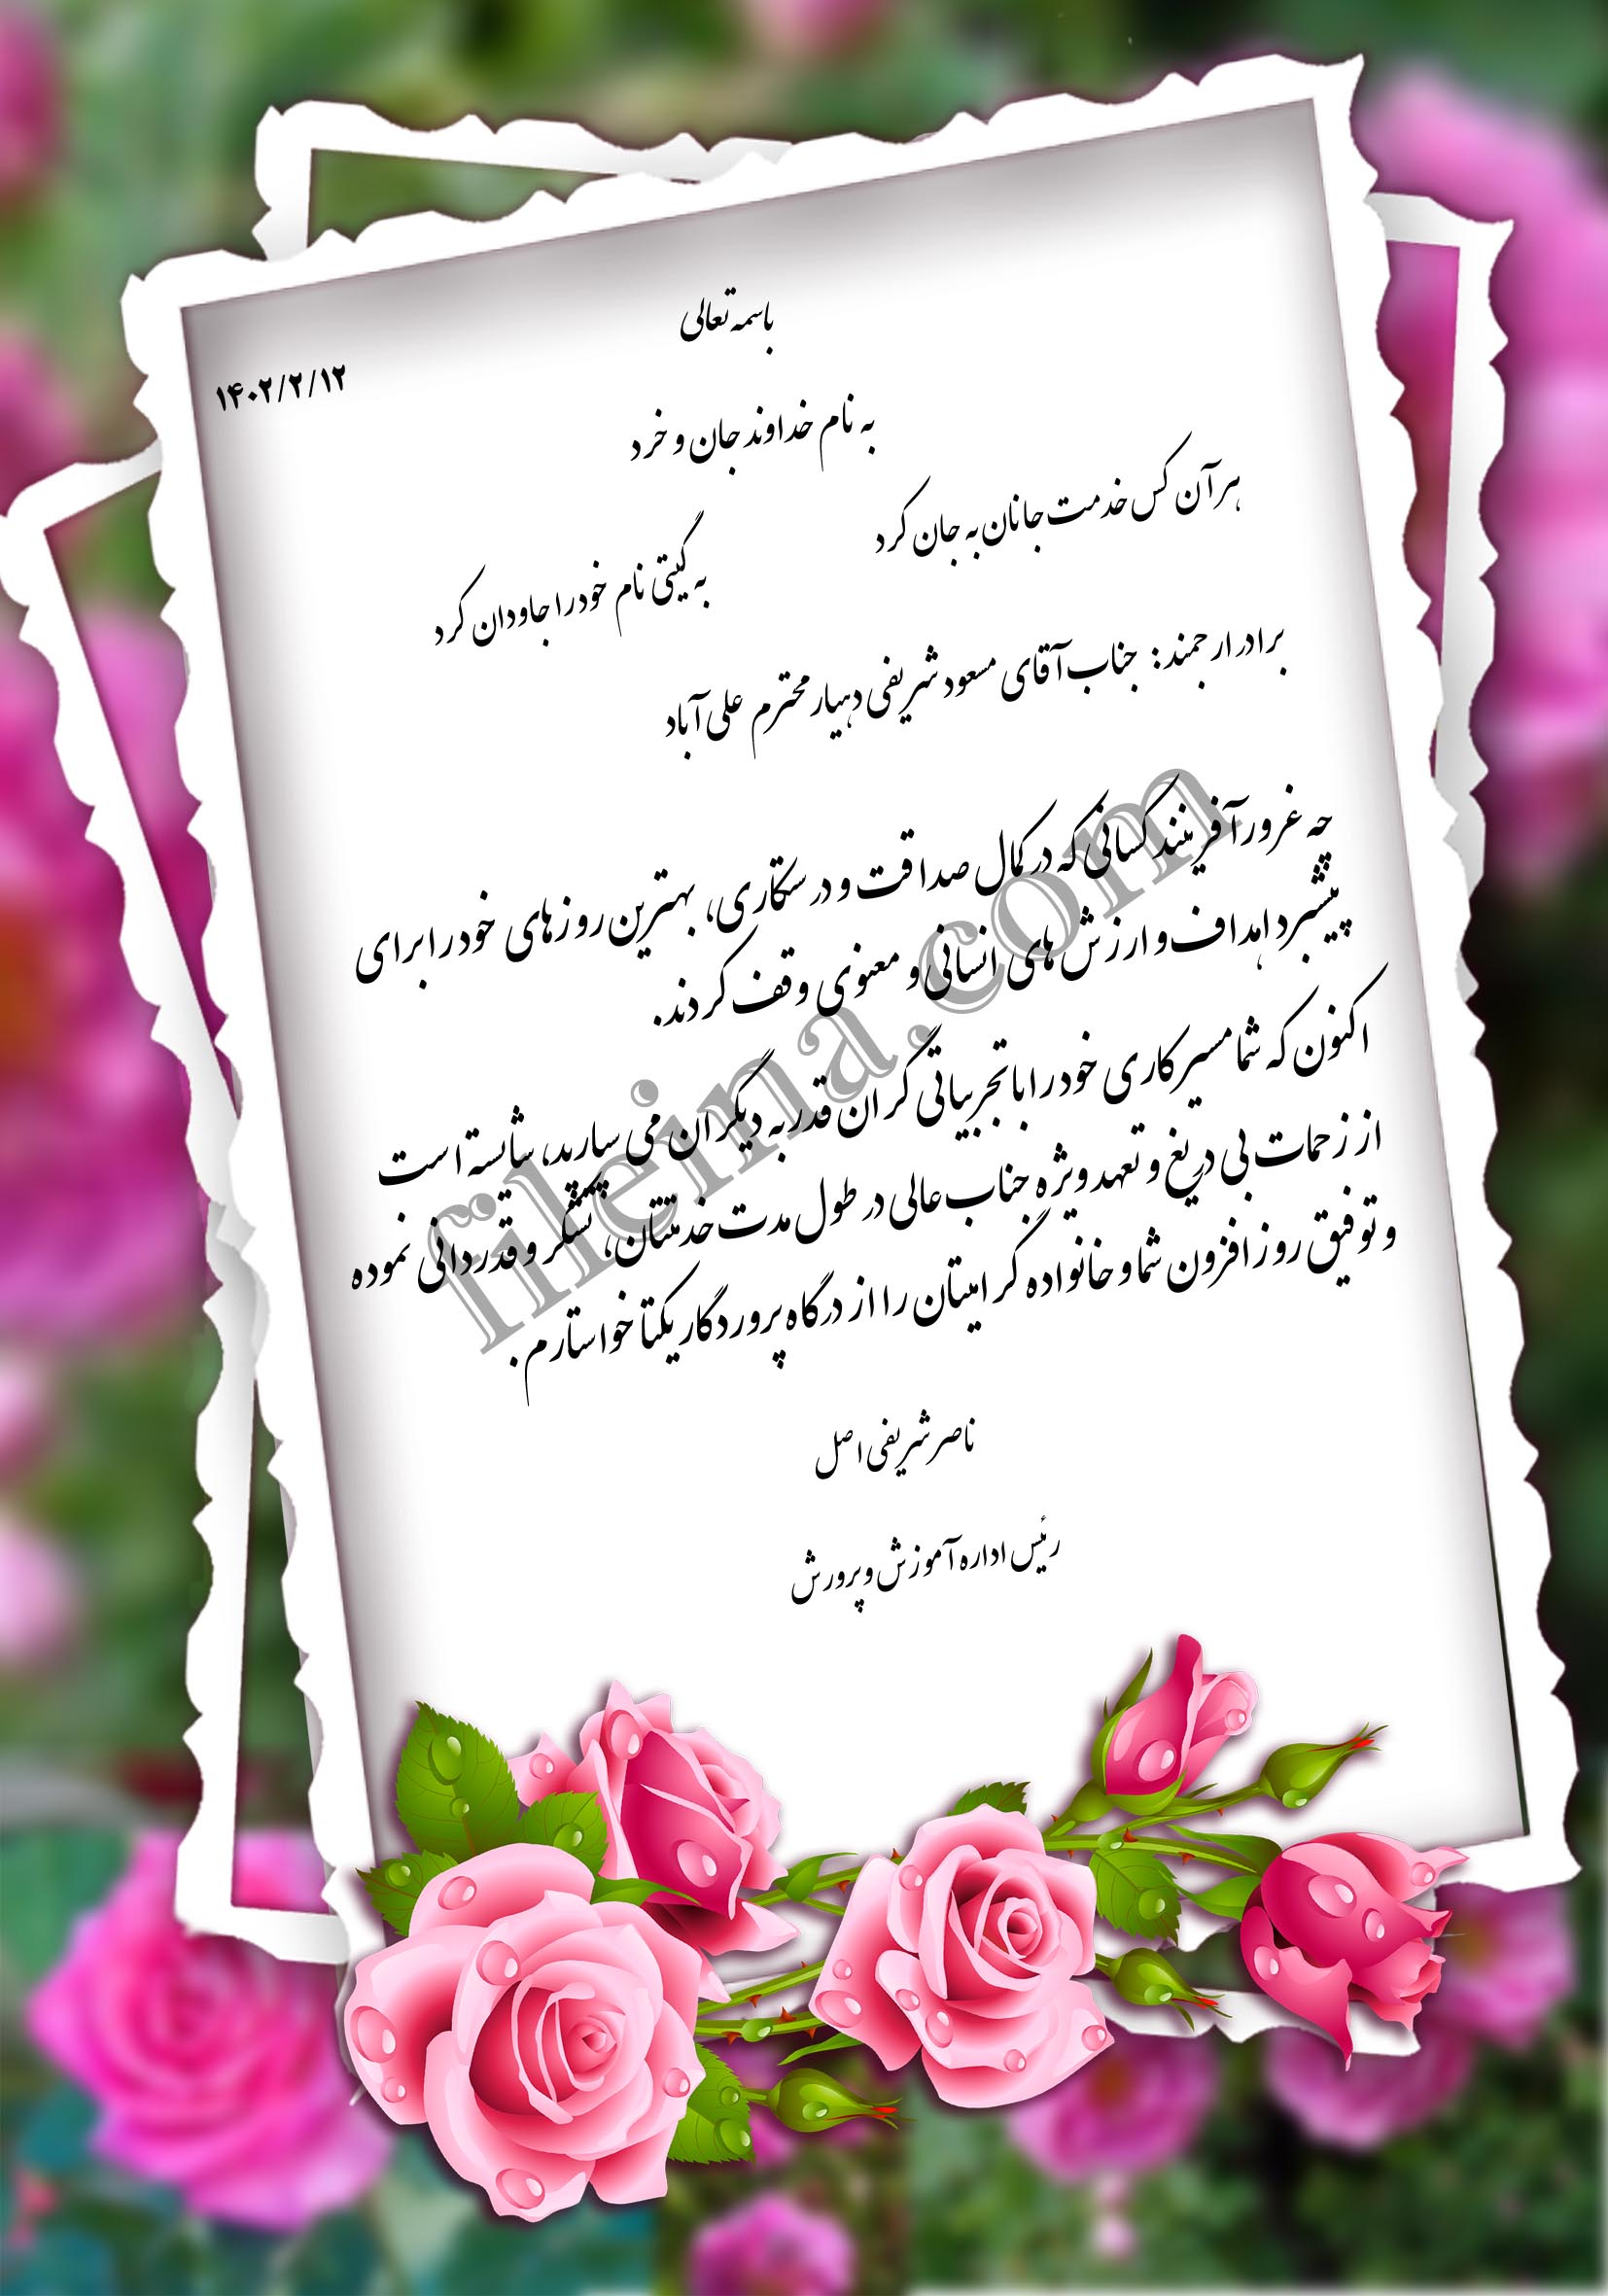 باسمه تعالی
۱۴۰۲/۲/۱۲
به نام خداوند جان و خرد
هر آن کس خدمت جانان به جان کرد
به گیتی نام خود را جاودان کرد
برادر ارجمند: جناب آقای مسعود شریفی دهیار محترم علی آباد
چه غرور آفرینند کسانی که در کمال صداقت و درستکاری، بهترین روزهای خود را برای
پیشبرد اهداف و ارزش های انسانی و معنوی وقف کردند.
اکنون که شما مسیر کاری خود را با تجربیاتی گران قدر به دیگران می سپارید، شایسته است
از زحمات بی دریغ و تعهد ویژه جناب عالی در طول مدت خدمتتان، تشکر و قدردانی نموده
و توفیق روز افزون شما و خانواده گرامیتان را از درگاه پروردگار یکتا خواستارم.
ناصر شریفی اصل
رئیس اداره آموزش و پرورش
fileina.com